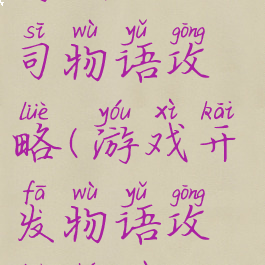 sī wù yǔ gōng
司物语攻
lüè yóu xì kāi
略(游戏开
fā wù yǔ gōng
发物语攻